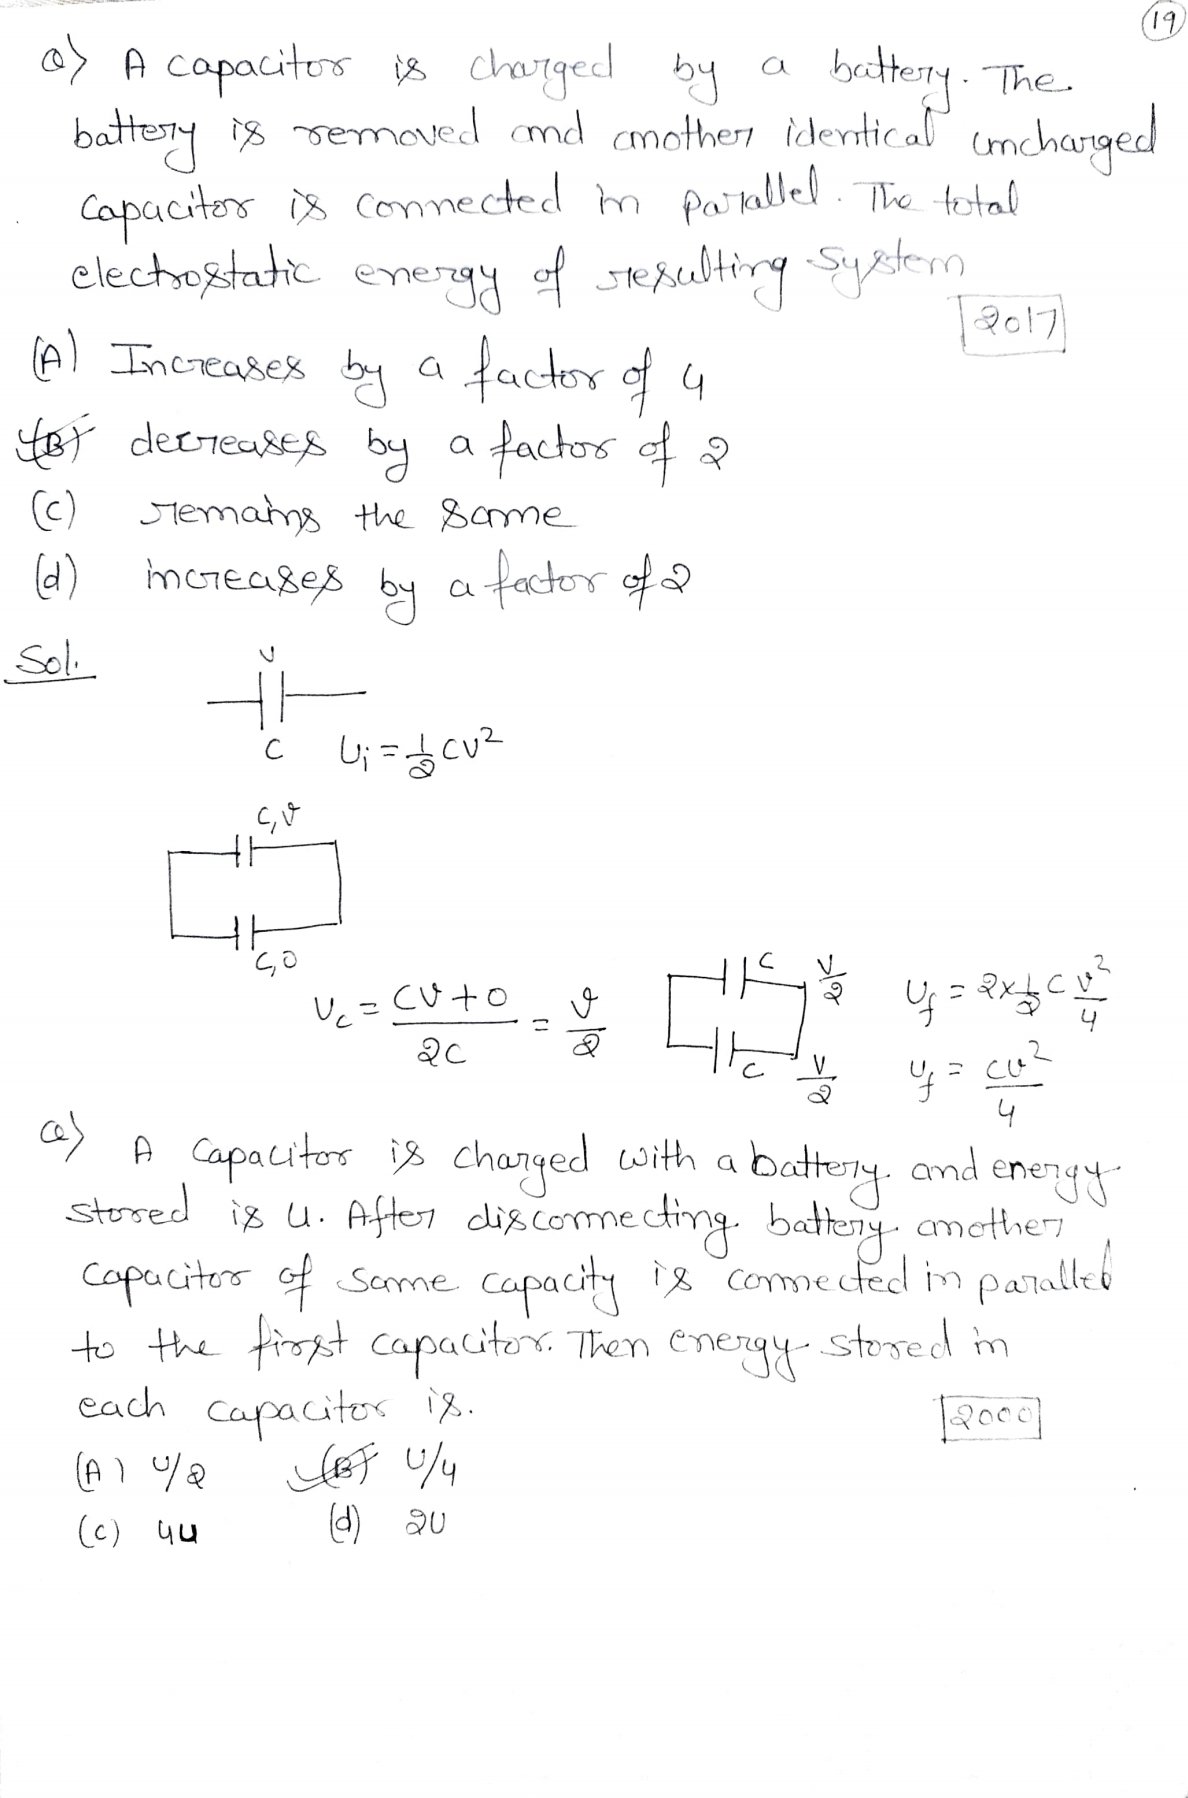 19
Q) A capacitor is charged by a battery. The
battery is removed and another identical uncharged
capacitor is connected in parallel. The total
electrostatic energy of resulting system
2017
(A) Increases by a factor of 4
(B) decreases by a factor of 2
(C) remains the same
(d) increases by a factor of 2
Sol.
V
C Ui = 1/2 CV²
C, V
C, 0
Vc = CV + 0 / 2C = V/2
C V/2
C V/2
Uf = 2 × 1/2 C V²/4
Uf = CV²/4
Q) A capacitor is charged with a battery and energy
stored is U. After disconnecting battery another
capacitor of same capacity is connected in parallel
to the first capacitor. Then energy stored in
each capacitor is.
2000
(A) U/2 (B) U/4
(C) 4U (d) 2U